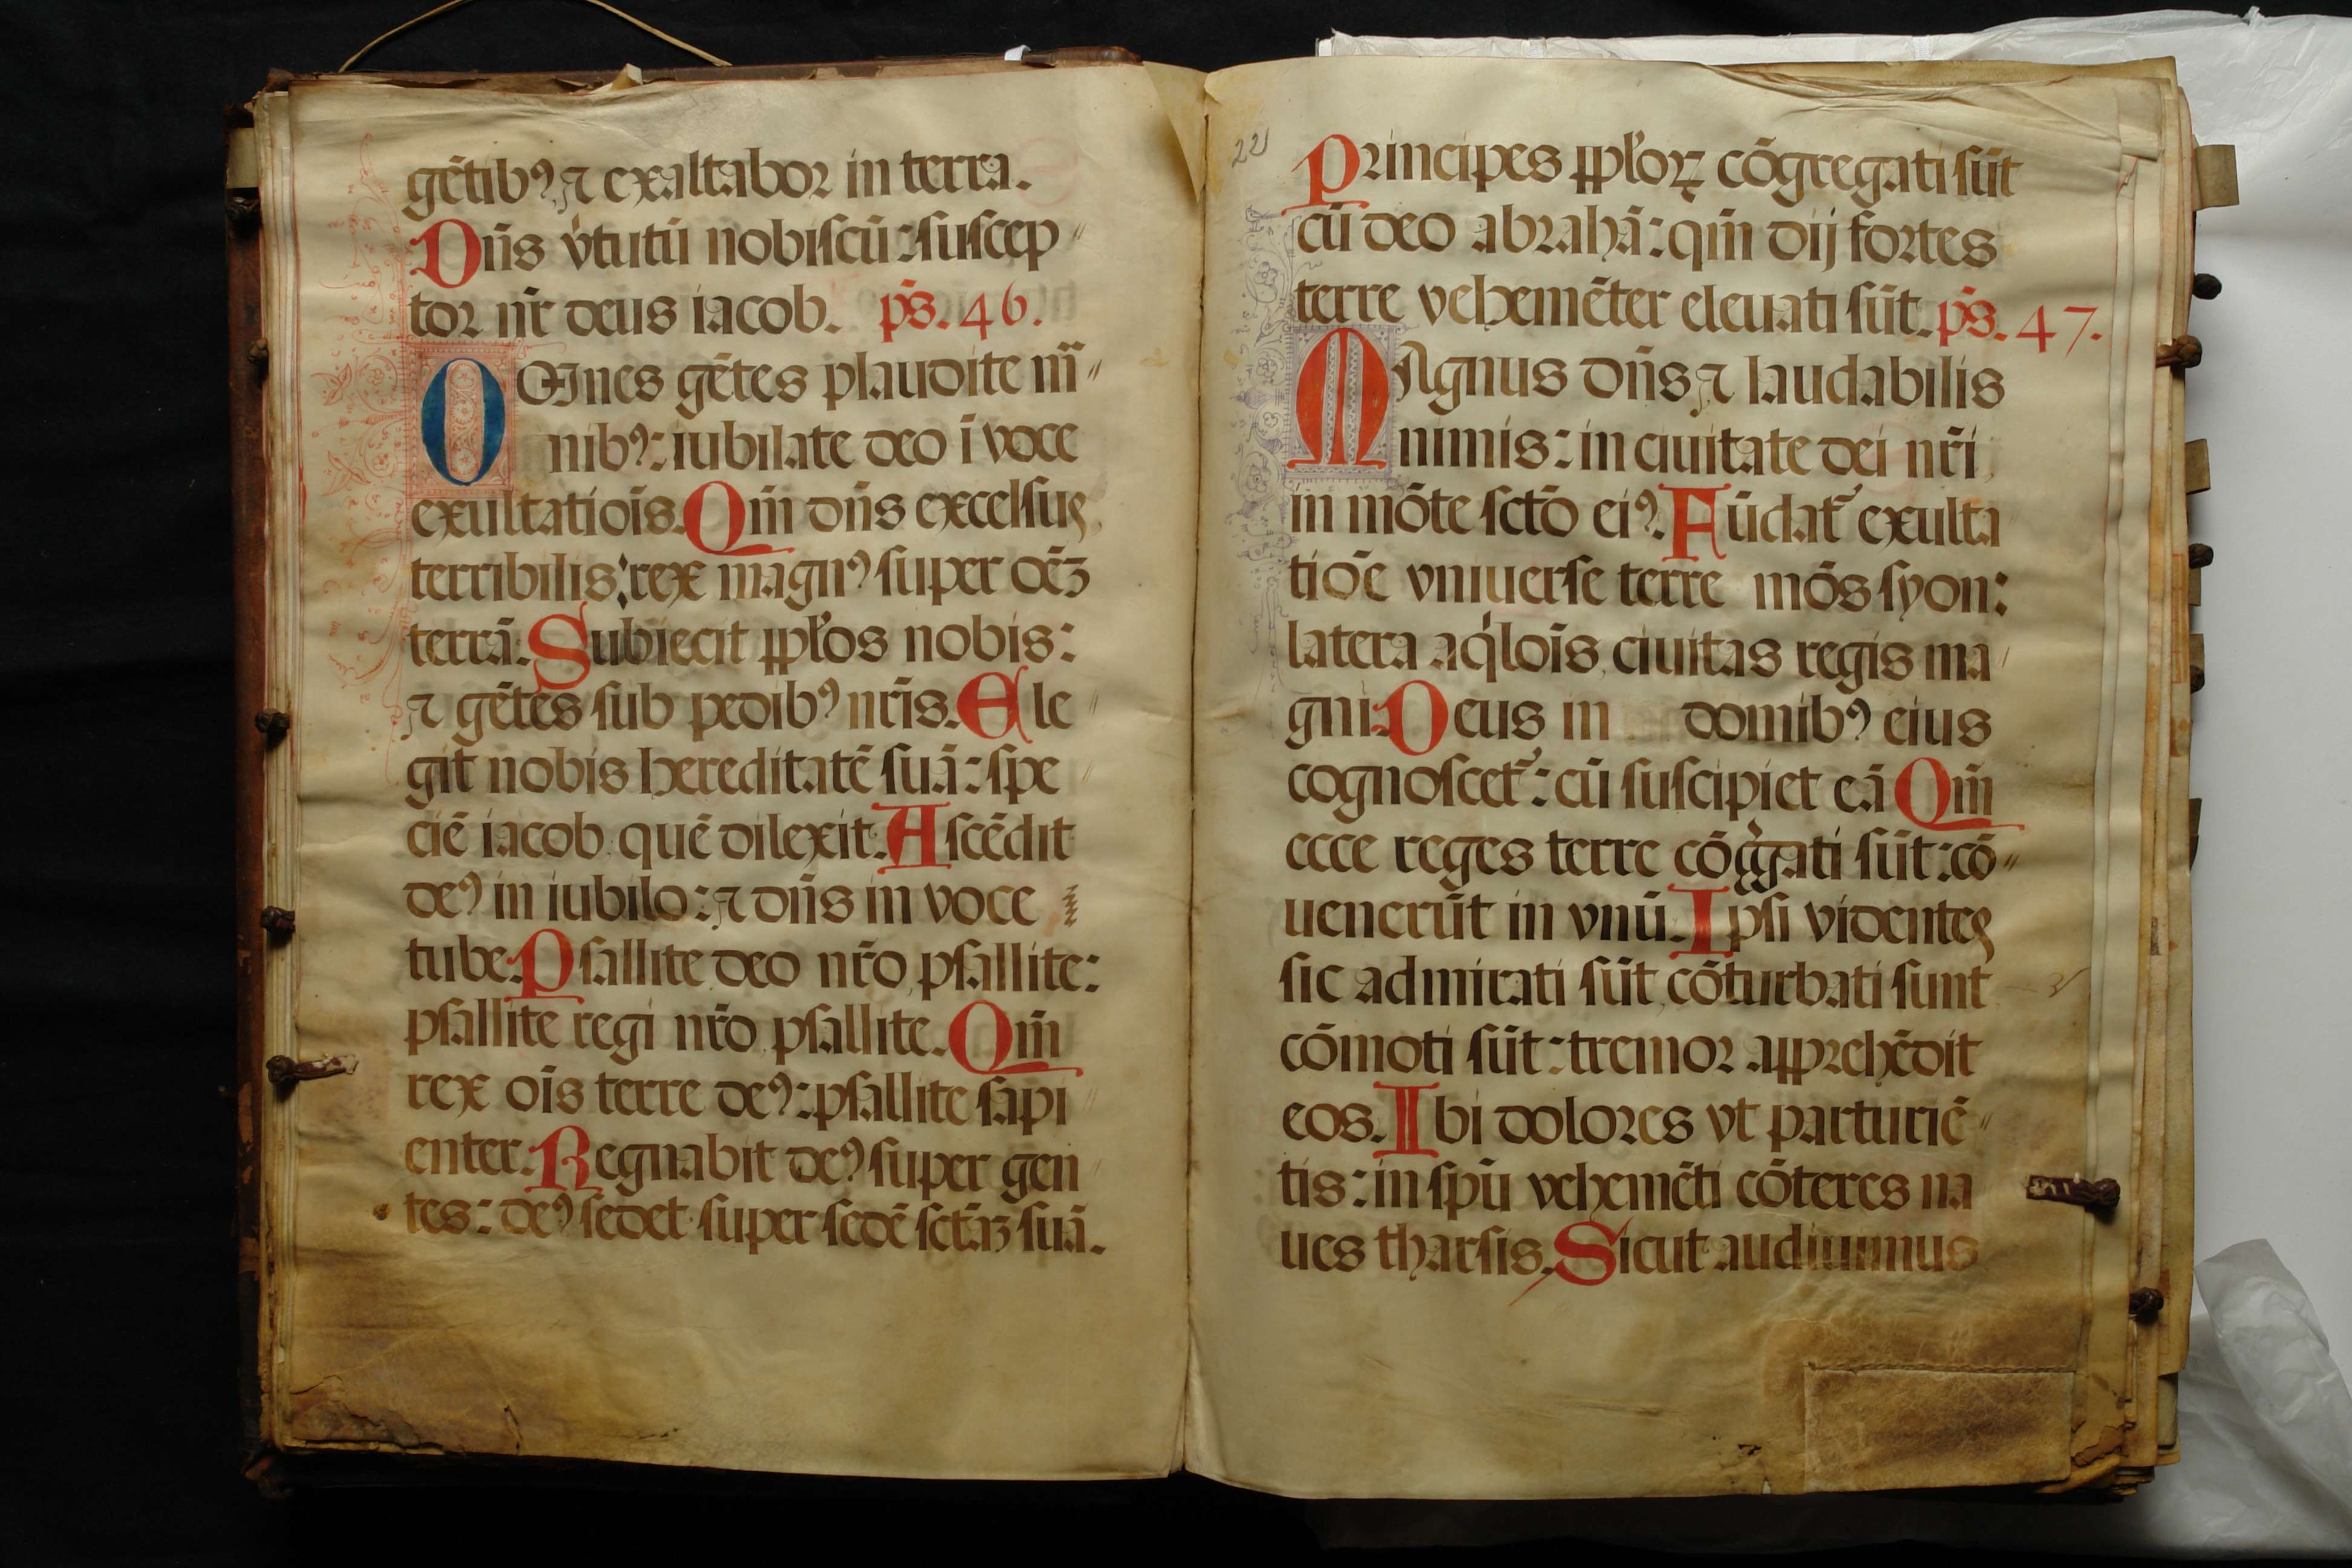 gētibꝰ ⁊ exaltabor in terra.
Dn̄s v̓tutū nobiſcū: ſuſcep〃
tor nr̄ deus iacob. ps̄. 46.
OOmnes gētes plaudite m̄〃
nibꝰ: iubilate deo ī voce
exultatiōis. Qm̄ dn̄s excelſus
terribilis: rex magnꝰ ſuper oēꝫ
terrā: Subiecit pp̄los nobis:
⁊ gētes ſub pedibꝰ nr̄is. Ele〃
git nobis hereditatē ſuā: ſpe〃
ciē iacob quē dilexit. Aſcēdit
deꝰ in iubilo: ⁊ dn̄s in voce
tube. Pſallite deo nr̄o pſallite:
pſallite regi nr̄o pſallite. Qm̄
rex oīs terre deꝰ: pſallite ſapi〃
enter. Regnabit deꝰ ſuper gen〃
tes: deꝰ ſedet ſuper ſedē ſctāꝫ ſuā.
221
Principes pp̄loꝝ cōgregati ſūt
cū deo abrahā: qm̄ dij fortes
terre vehemēter eleuati ſūt. ps̄. 47.
MAgnus dn̄s ⁊ laudabilis
nimis: in ciuitate dei nr̄i
in mōte ſctō eiꝰ. Fūdat᷑ exulta
tiōē vniuerſe terre mōs ſyon:
latera aq̓lois̄ ciuitas regis ma〃
gni. Deus in domibꝰ eius
cognoſcet᷑: cū ſuſcipiet eā Qm̄
ecce reges terre cōg̓gati ſūt: cō〃
uenerūt in vnū. Ipſi videntes
ſic admirati ſūt cōturbati sunt
cōmoti ſūt: tremor apprehēdit
eos. Ibi dolores vt parturiē〃
tis: in ſpū vehemēti cōteres na
ues tharſis. Sicut audiuimus